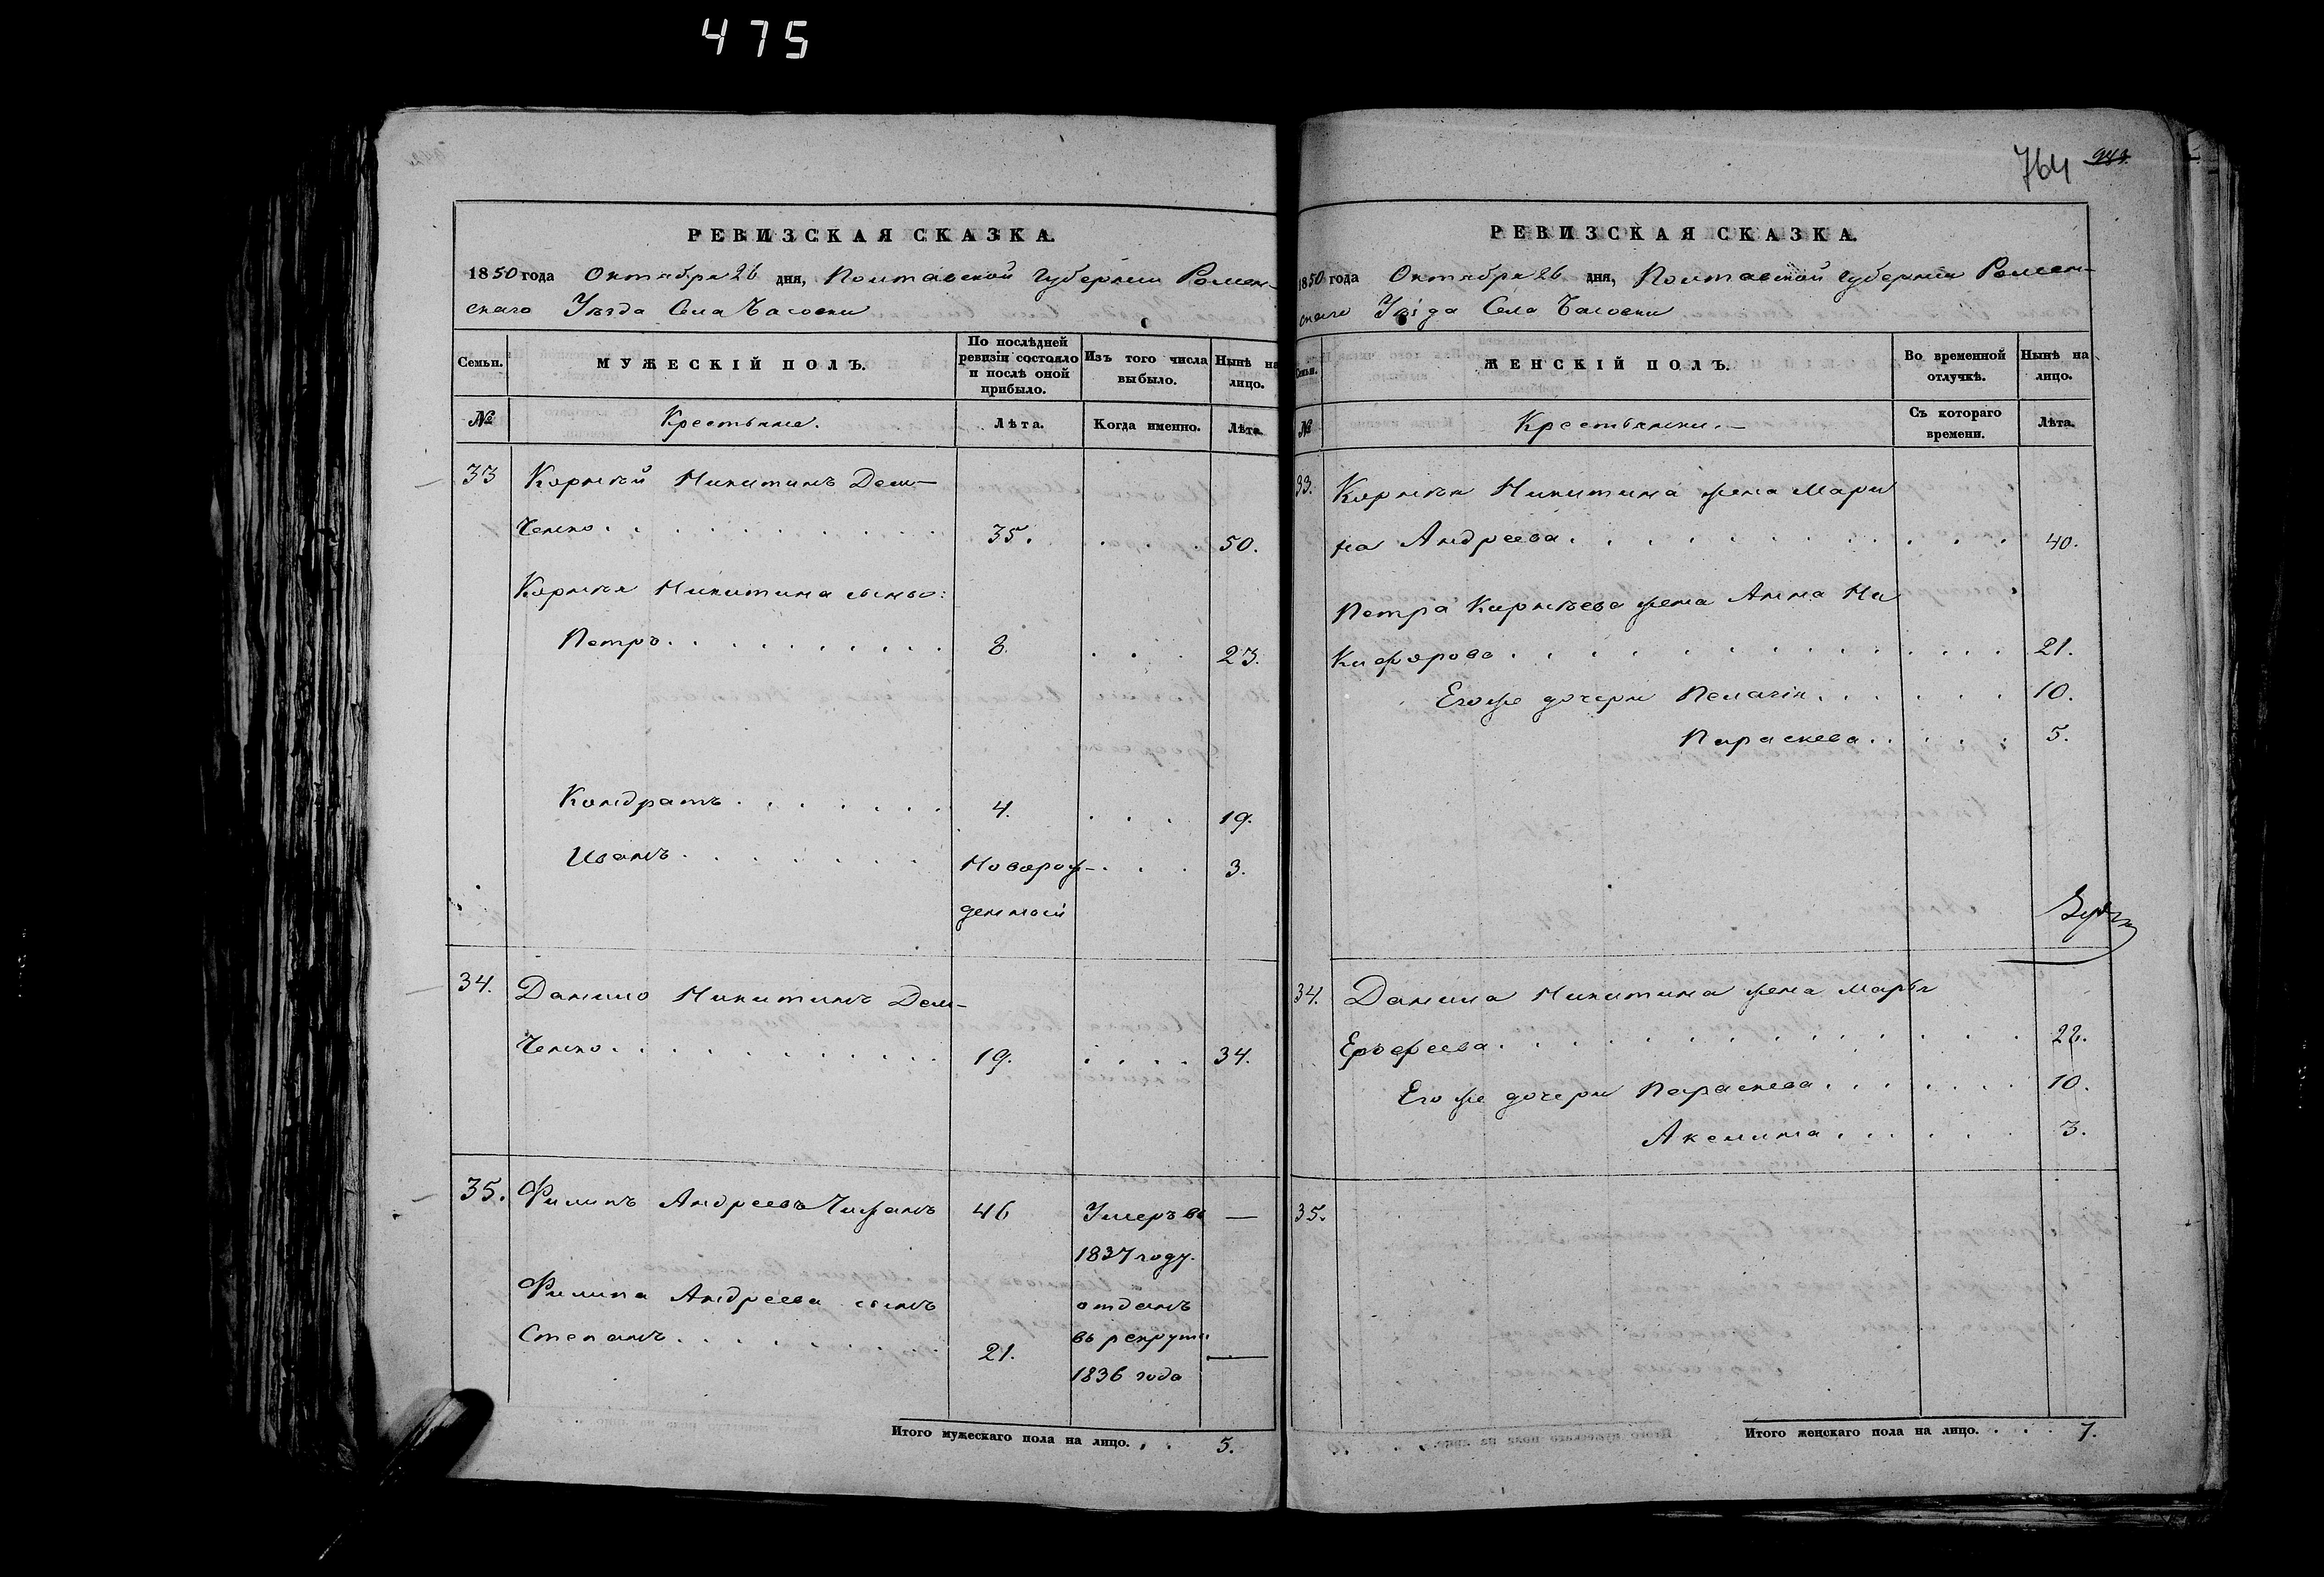 475
764 983.
РЕВИЗСКАЯ СКАЗКА.
1850 года Октября 26 дня, Полтавской Губернии Ромен-
скаго Уѣзда Села Басовки
Семьи.
МУЖЕСКІЙ ПОЛЪ.
По послѣдней ревизіи состояло и послѣ оной прибыло.
Изъ того числа выбыло.
Нынѣ на лицо.
№
Крестьяне.
Лѣта.
Когда именно.
Лѣта.
33 Корнѣй Никитинъ Дем-
ченко . . . 35. . . 50.
Корнѣя Никитина сыны:
Петръ . . . 8. . . . 23.
Кондратъ . . . 4. . . . 19.
Иванъ . . . Новорож- . . . 3.
денной
34. Данило Никитинъ Дем-
ченко . . . 19. . . . . 34.
35. Филипъ Андреевъ Чижанъ 46 Умеръ въ —
1837 году.
Филипа Андреева сынъ отданъ
Степанъ . . . 21. въ рекруты —
1836 года
Итого мужескаго пола на лицо. . . 5.
РЕВИЗСКАЯ СКАЗКА.
1850 года Октября 26 дня, Полтавской Губерніи Ромен-
скаго Уѣзда Села Басовки
Семьи.
ЖЕНСКІЙ ПОЛЪ.
Во временной отлучкѣ.
Нынѣ на лицо.
№
Крестьянки.—
Съ котораго времени.
Лѣта.
33. Корнѣя Никитина жена Мари
на Андреева . . . 40.
Петра Карнѣева жена Анна Ни
кифорова . . . 21.
Его же дочери Пелагія . . . 10.
Параскева . . . 5.
34. Данила Никитина жена Марья
Ерофеева . . . 22.
Его же дочери Параскева . . . 10.
Акелина . . . 3.
35.
Итого женскаго пола на лицо. . . . 7.